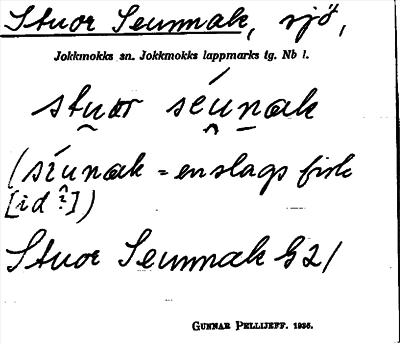 Stuor Seunnak, sjö,
Jokkmokks sn. Jokkmokks lappmarks tg. Nb l.
stuor séunak
(síunak = en slags fisk
[id?])
Stuor Seunnak G21
GUNNAR PELLIJEFF. 1935.